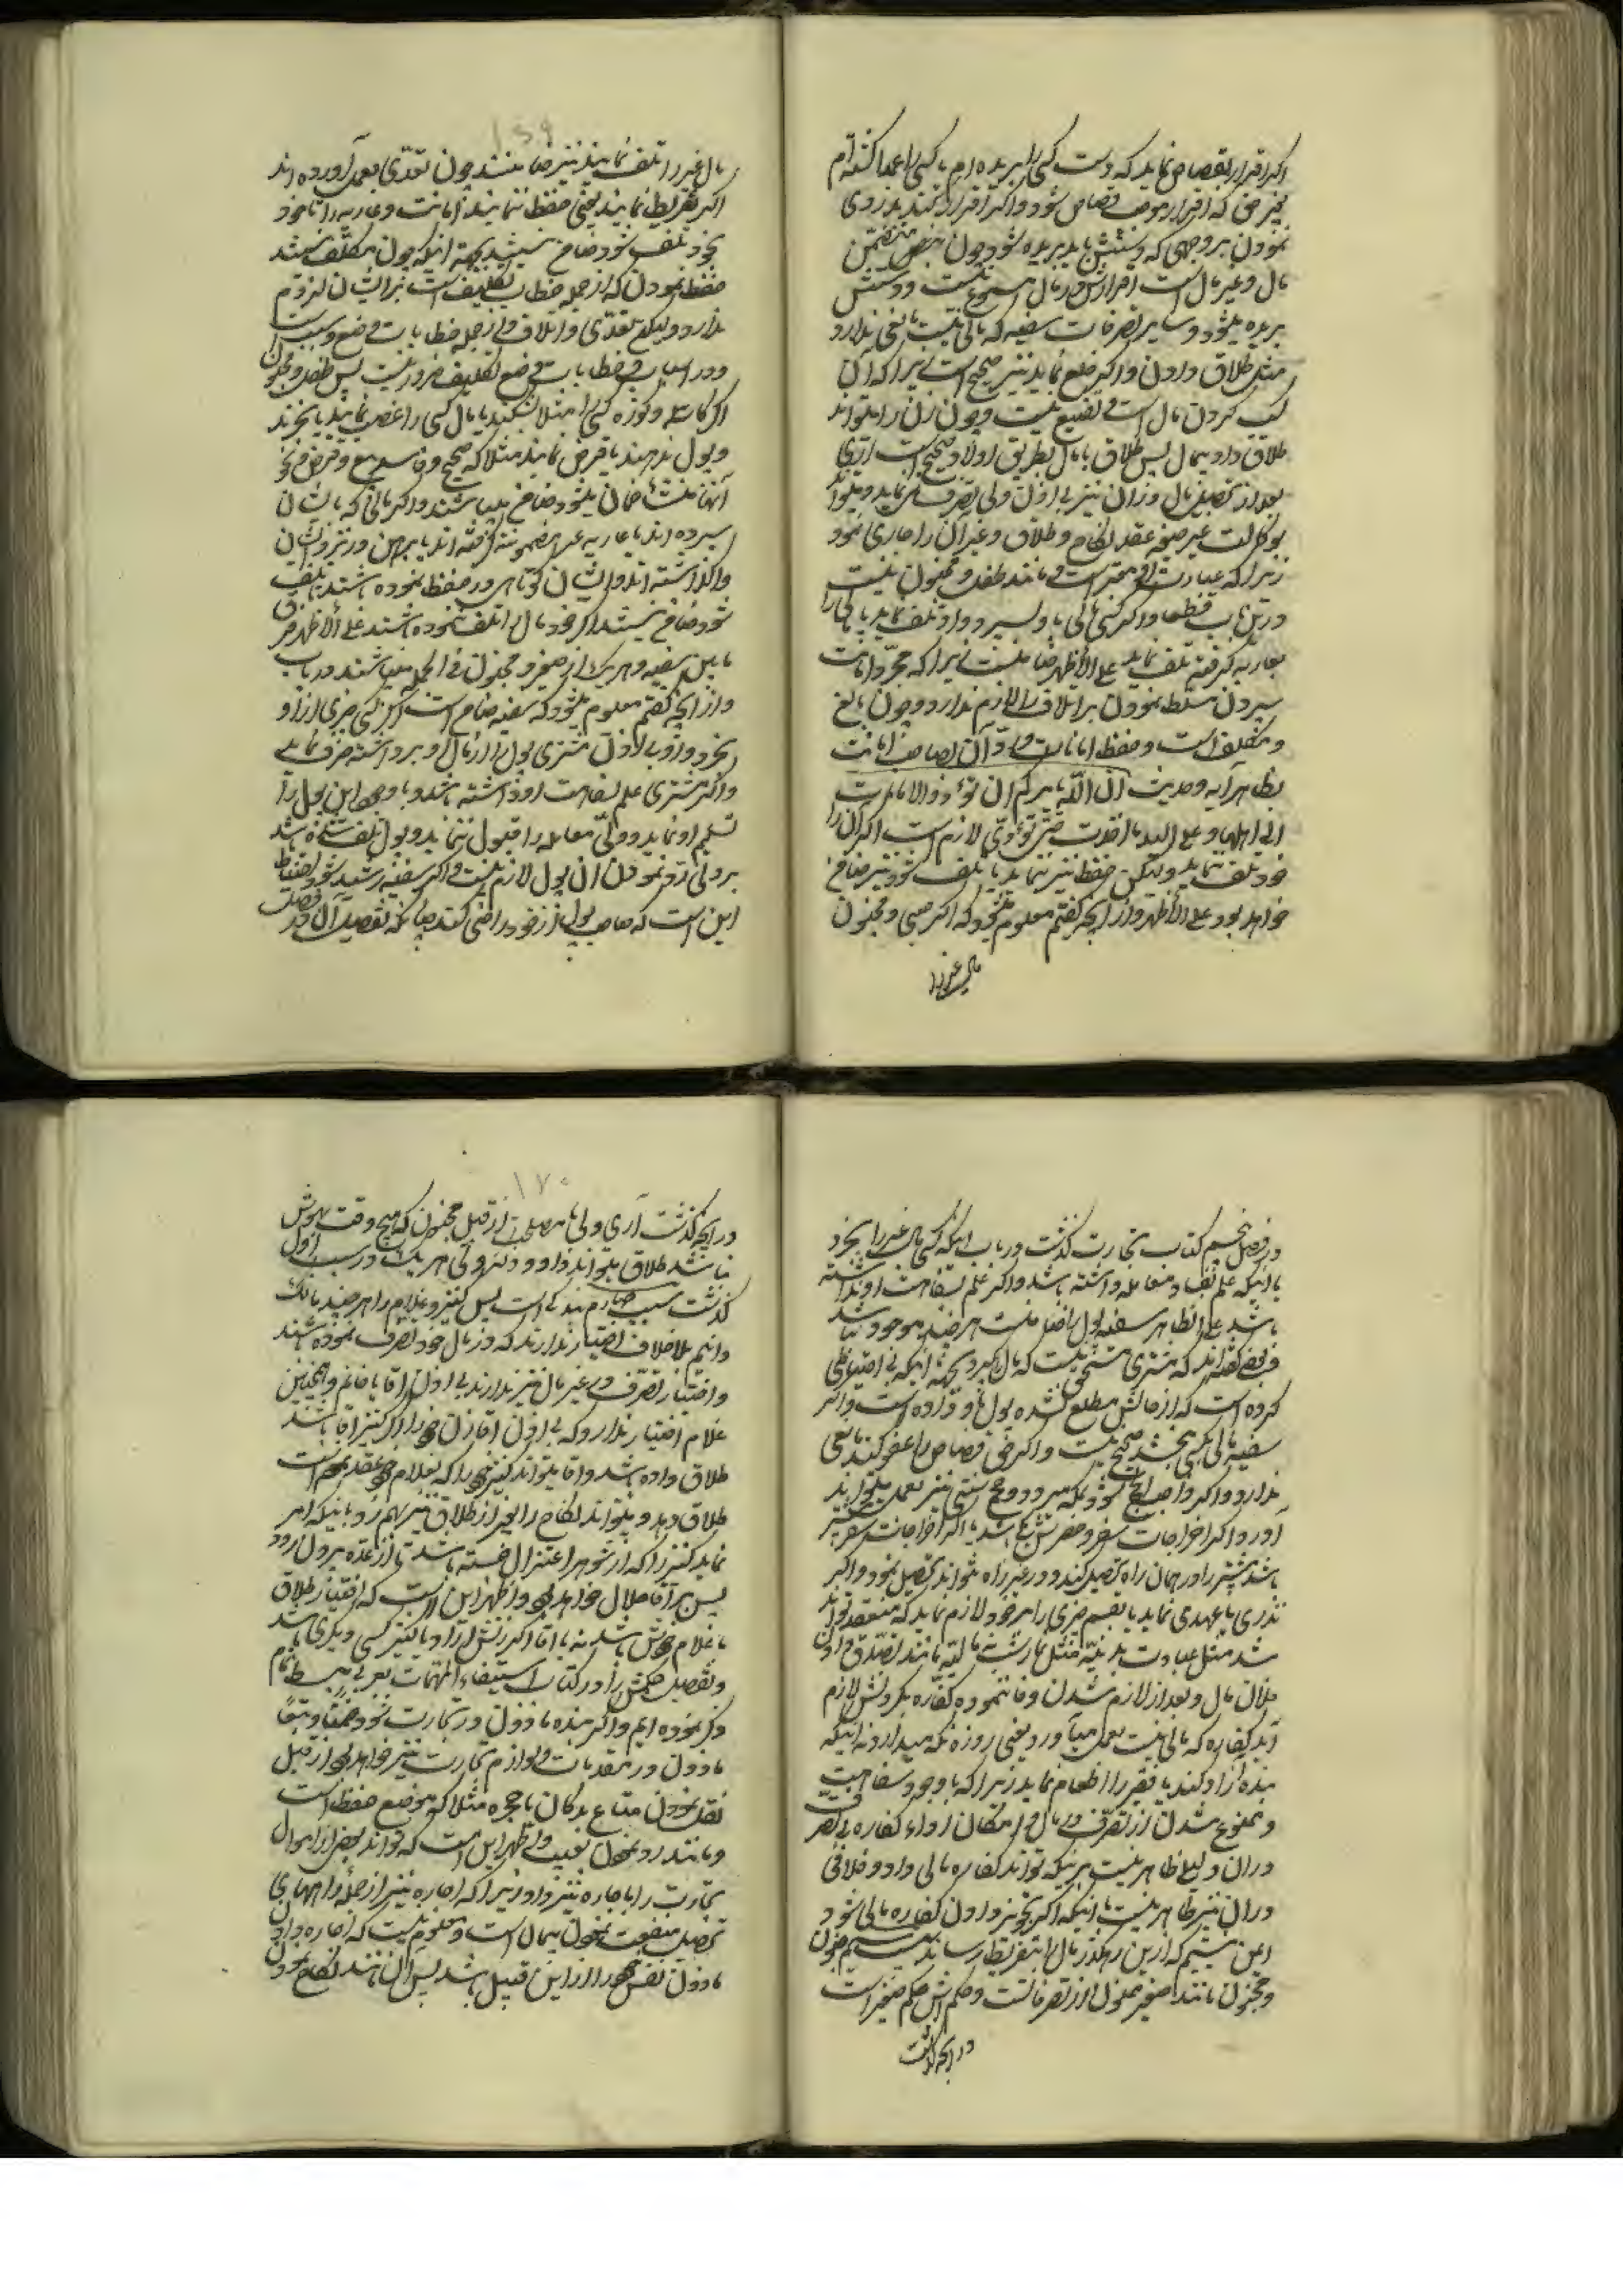 اکر اقرار بقصاص نماید که دست کسی را بریده ام یا کسی را عمدا کشته ام
که اقرار موجب قصاص شود و اکر اقرار کند بدزدی
نمودن بر وجهی که دستش باید بریده شود چون متضمن
مال و غیر مال است اقرارش در مال مسموع نیست و دستش
بریده میشود و سایر تصرفات سفیه که مالی نیست مانعی ندارد
مثل طلاق دادن و اکر خلع نماید نیز صحیح است زیرا که آن
کسب کردن مال است تضییع نیست و چون زن را میتواند
طلاق داد بیمال پس طلاق با مال بطریق اولا صحیح است
بعد از تحصیل مال در آن نیز بی اذن ولی تصرف نماید و میتواند
بوکالت غیر صیغه عقد نکاح و طلاق و غیر آن را جاری نمود
زیرا که عبارت او معتبر است و مانند طفل و مجنون نیست
در این باب قطعا و اکر کسی مالی باو بسپرد و او تلف نماید یا مالی را
بعاریه کرفته تلف نماید علی الاظهر ضامن نیست زیرا که مجرّد امانت
سپردن مسلط نمودن بر اتلاف را لازم ندارد و چون بالغ
و مکلف است و حفظ امانات و ردّ آن بصاحب امانت
بظاهر آیه و حدیث ان اللّه یامرکم ان تؤدوا الامانات
الی اهلها و علی الید ما اخذت حتی تؤدّی لازم است اکر آن را
خود تلف ننماید ولیکن حفظ نیز ننماید یا تلف شود نیز ضامن
خواهد بود علی الاظهر و از آنچه کفتم معلوم میشود که اکر صبی و مجنون
مال غیر را
۱۶۹
مال غیر را تلف نمایند نیز ضامنند چون تعدّی بعمل آورده اند
اکر تفریط نمایند یعنی حفظ ننمایند امانت و عاریه را تا خود
بخود تلف شود ضامن نیستند بجهة آنکه چون مکلّف نیستند
حفظ نمودن که از جمله خطاب تکلیف است بر ایشان لزوم
ندارد ولیکن تعدّی و اتلاف از جمله خطابات وضع و سبب است
و در اسباب و خطابات وضع تکلیف ضرور نیست پس طفل و مجنون
اکر کاسه و کوزه کسی را مثلا بشکنند یا مال کسی را غصب نمایند یا بخرند
و پول ندهند یا قرض نمایند مثلا که صحیح و فاسد بیع و قرض و نحو
آنها منشأ ضمان میشود ضامن میباشند و اکر مالی که بایشان
سپرده اند یا عاریه غیر مضمونه کرفته اند یا برهن در نزد ایشان
واکذاشته اند و ایشان کوتاهی در حفظ نموده باشند یا تلف
شود ضامن نیستند اکر خود مال را تلف ننموده باشند علی الاظهر فرق
مابین سفیه و هر یک از صغیر و مجنون فی الجمله میباشند در باب
و از آنچه کفتم معلوم میشود که سفیه ضامن است اکر کسی چیزی از او
بخرد و او بی اذن مشتری پول را از مال او برداشته صرف نماید
و اکر مشتری علم بسفاهت او داشته باشد و با وجود این پول را
تسلیم او نماید و ولیّ معامله را قبول ننماید و پول تلف شده باشد
بر ولی ردّ نمودن آن پول لازم نیست و اکر سفیه رشید شود احتیاط
این است که صاحب پول را از خود راضی کند چنانکه تفصیل آن در فصل
در فصل پنجم کتاب تجارت کذشت در باب اینکه کسی مال غیر را بخرد
با اینکه علم بفساد معامله داشته باشد و اکر علم بسفاهت او نداشته
باشد علی الظاهر سفیه پول را ضامن نیست هر چند موجود نباشد
و بعضی کفته اند که مشتری مستحق نیست که مال بکیرد بجهة اینکه بی احتیاطی
کرده است که از حالش مطلع نشده پول باو داده است و اکر
سفیه مالی بکسی بخشد صحیح نیست و اکر حق قصاص را عفو کند مانعی
ندارد و اکر واجب الحج شود بمکه میرود و حج سنتی نیز بعمل میتواند
آورد و اکر اخراجات سفر و حضرش یکی باشد یا اکر اخراجات سفر
باشد بیشتر را در همان راه تحصیل کند و در غیر راه نتواند تحصیل نمود و اکر
نذری یا عهدی نماید یا بقسم چیزی را بر خود لازم نماید که منعقد تواند
شد مثل عبادت بدنیّه مثل نماز نه مالیّه مانند تصدّق دادن
فلان مال و بعد از لازم شدن وفا ننموده کفّاره بکردنش لازم
آید کفاره که مالی نیست بعمل میآورد یعنی روزه نکه میدارد نه اینکه
بنده آزاد کند یا فقیر را اطعام نماید زیرا که با وجود سفاهیت
و ممنوع شدن از تصرّف در مال و امکان اداء کفاره بی تصرف
در آن دلیل ظاهر نیست بر اینکه تواند کفاره مالی داد و خلافی
در آن نیز ظاهر نیست با اینکه اکر تجویز دادن کفاره مالی شود
ایمن نیستیم که از این رهکذر مال را بتفریط رساند سیّم جنون
و مجنون مانند صغیر ممنوع از تصرفاتست و حکمش حکم صغیر است
در آنچه کذشت
۱۷۰
در آنچه کذشت آری ولی با مصلحت از قبل مجنون که هیچ وقت بهوش
نباشد طلاق میتواند داد و ولی هر یک در سبب اول
کذشت سبب چهارم بندکی است پس کنیز و غلام را هر چند مالک
دانیم بلا خلاف اختیار ندارند که در مال خود تصرف نموده باشند
و اختیار تصرّف در غیر مال نیز ندارند بی اذن آقا یا خانم و همچنین
غلام اختیار ندارد که بی اذن آقا زن خود را اکر کنیز آقا باشد
طلاق داده باشد و آقا میتواند کنیز خود را که بغلام خود عقد نموده است
طلاق دهد و میتواند نکاح را بغیر از طلاق نیز بهم زد باینکه امر
نماید کنیز را که از شوهر اعتزال جسته باشد تا از عدّه بیرون رود
پس بر آقا حلال خواهد بود و اظهر این است که اختیار طلاق
با غلام خودش باشد نه با آقا اکر زنش آزاد یا کنیز کسی دیکری باشد
و تفصیل حکمش را در کتاب استیفاء المهمات بعربی ببسط تمام
ذکر نموده ایم و اکر بنده ماذون در تجارت شود ضمنًا و تبعًا
ماذون در مقدمات و لوازم تجارت نیز خواهد بود از قبیل
نقل نمودن متاع بدکان یا حجره مثلا که موضع حفظ است
و مانند رد نمودن بعیب و اظهر این است که تواند بعضی از اموال
تجارت را باجاره نیز داد زیرا که اجاره نیز از جمله راههای
تحصیل منفعت نمودن بمال است و معلوم نیست که اجاره دادن
ماذون نفس خود را از این قبیل باشد پس آن مانند نکاح نمودن